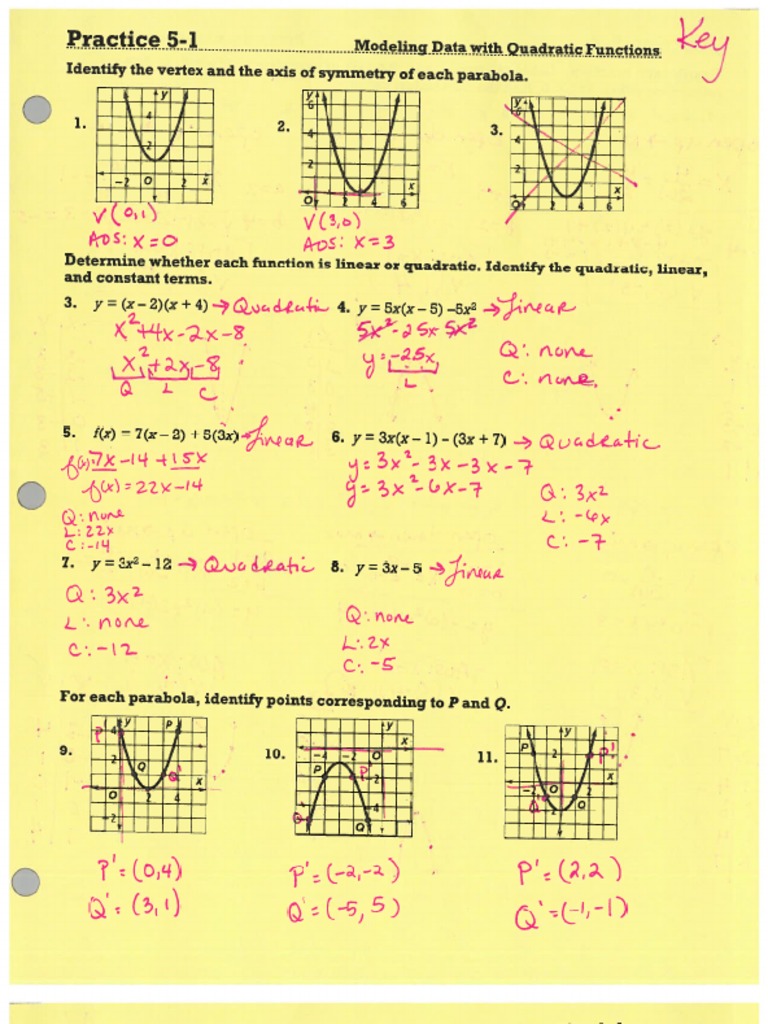 Practice 5-1
Modeling Data with Quadratic Functions
Key
Identify the vertex and the axis of symmetry of each parabola.
1.
y
4
2
-2
O
2
x
2.
y
6
4
2
O
2
4
6
x
3.
y
6
4
2
O
2
4
6
x
V(0,1)
AOS: x=0
V(3,0)
AOS: x=3
Determine whether each function is linear or quadratic. Identify the quadratic, linear,
and constant terms.
3. y = (x – 2)(x + 4) → Quadratic
x²+4x-2x-8
x²+2x-8
Q L C
4. y = 5x(x – 5) –5x² → Linear
5x²-25x-5x²
y=-25x
L
Q: none
C: none.
5. f(x) = 7(x – 2) + 5(3x) → Linear
f(x)=7x-14+15x
f(x)=22x-14
Q: none
L: 22x
C: -14
6. y = 3x(x – 1) – (3x + 7) → Quadratic
y=3x²-3x-3x-7
y=3x²-6x-7
Q: 3x²
L: -6x
C: -7
7. y = 3x² – 12 → Quadratic
Q: 3x²
L: none
C: -12
8. y = 3x – 5 → Linear
Q: none
L: 2x
C: -5
For each parabola, identify points corresponding to P and Q.
9.
P'
4
y
P
2
Q
Q'
x
O
2
4
-2
10.
y
x
-4
-2
O
P
P'
-2
-4
Q'
Q
11.
y
P
2
P'
-2
O
2
x
Q'
Q
-2
P'=(0,4)
Q'=(3,1)
P'=(-2,-2)
Q'=(-5,5)
P'=(2,2)
Q'=(-1,-1)